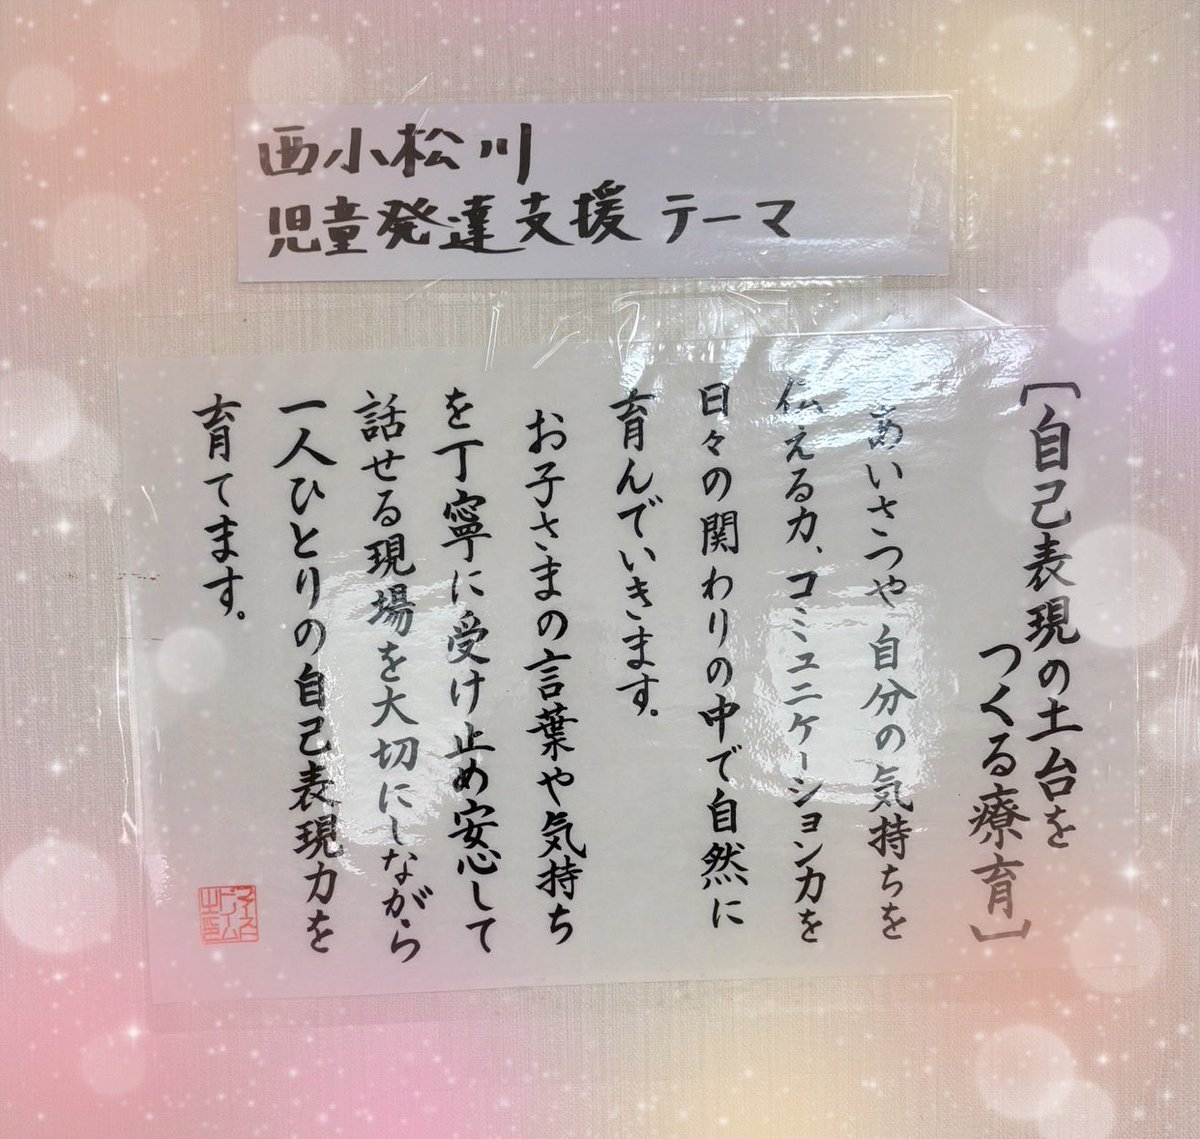 西小松川
児童発達支援 テーマ
［自己表現の土台を
つくる療育］
あいさつや自分の気持ちを
伝える力、コミュニケーション力を
日々の関わりの中で自然に
育んでいきます。
お子さまの言葉や気持ち
を丁寧に受け止め安心して
話せる現場を大切にしながら
一人ひとりの自己表現力を
育てます。